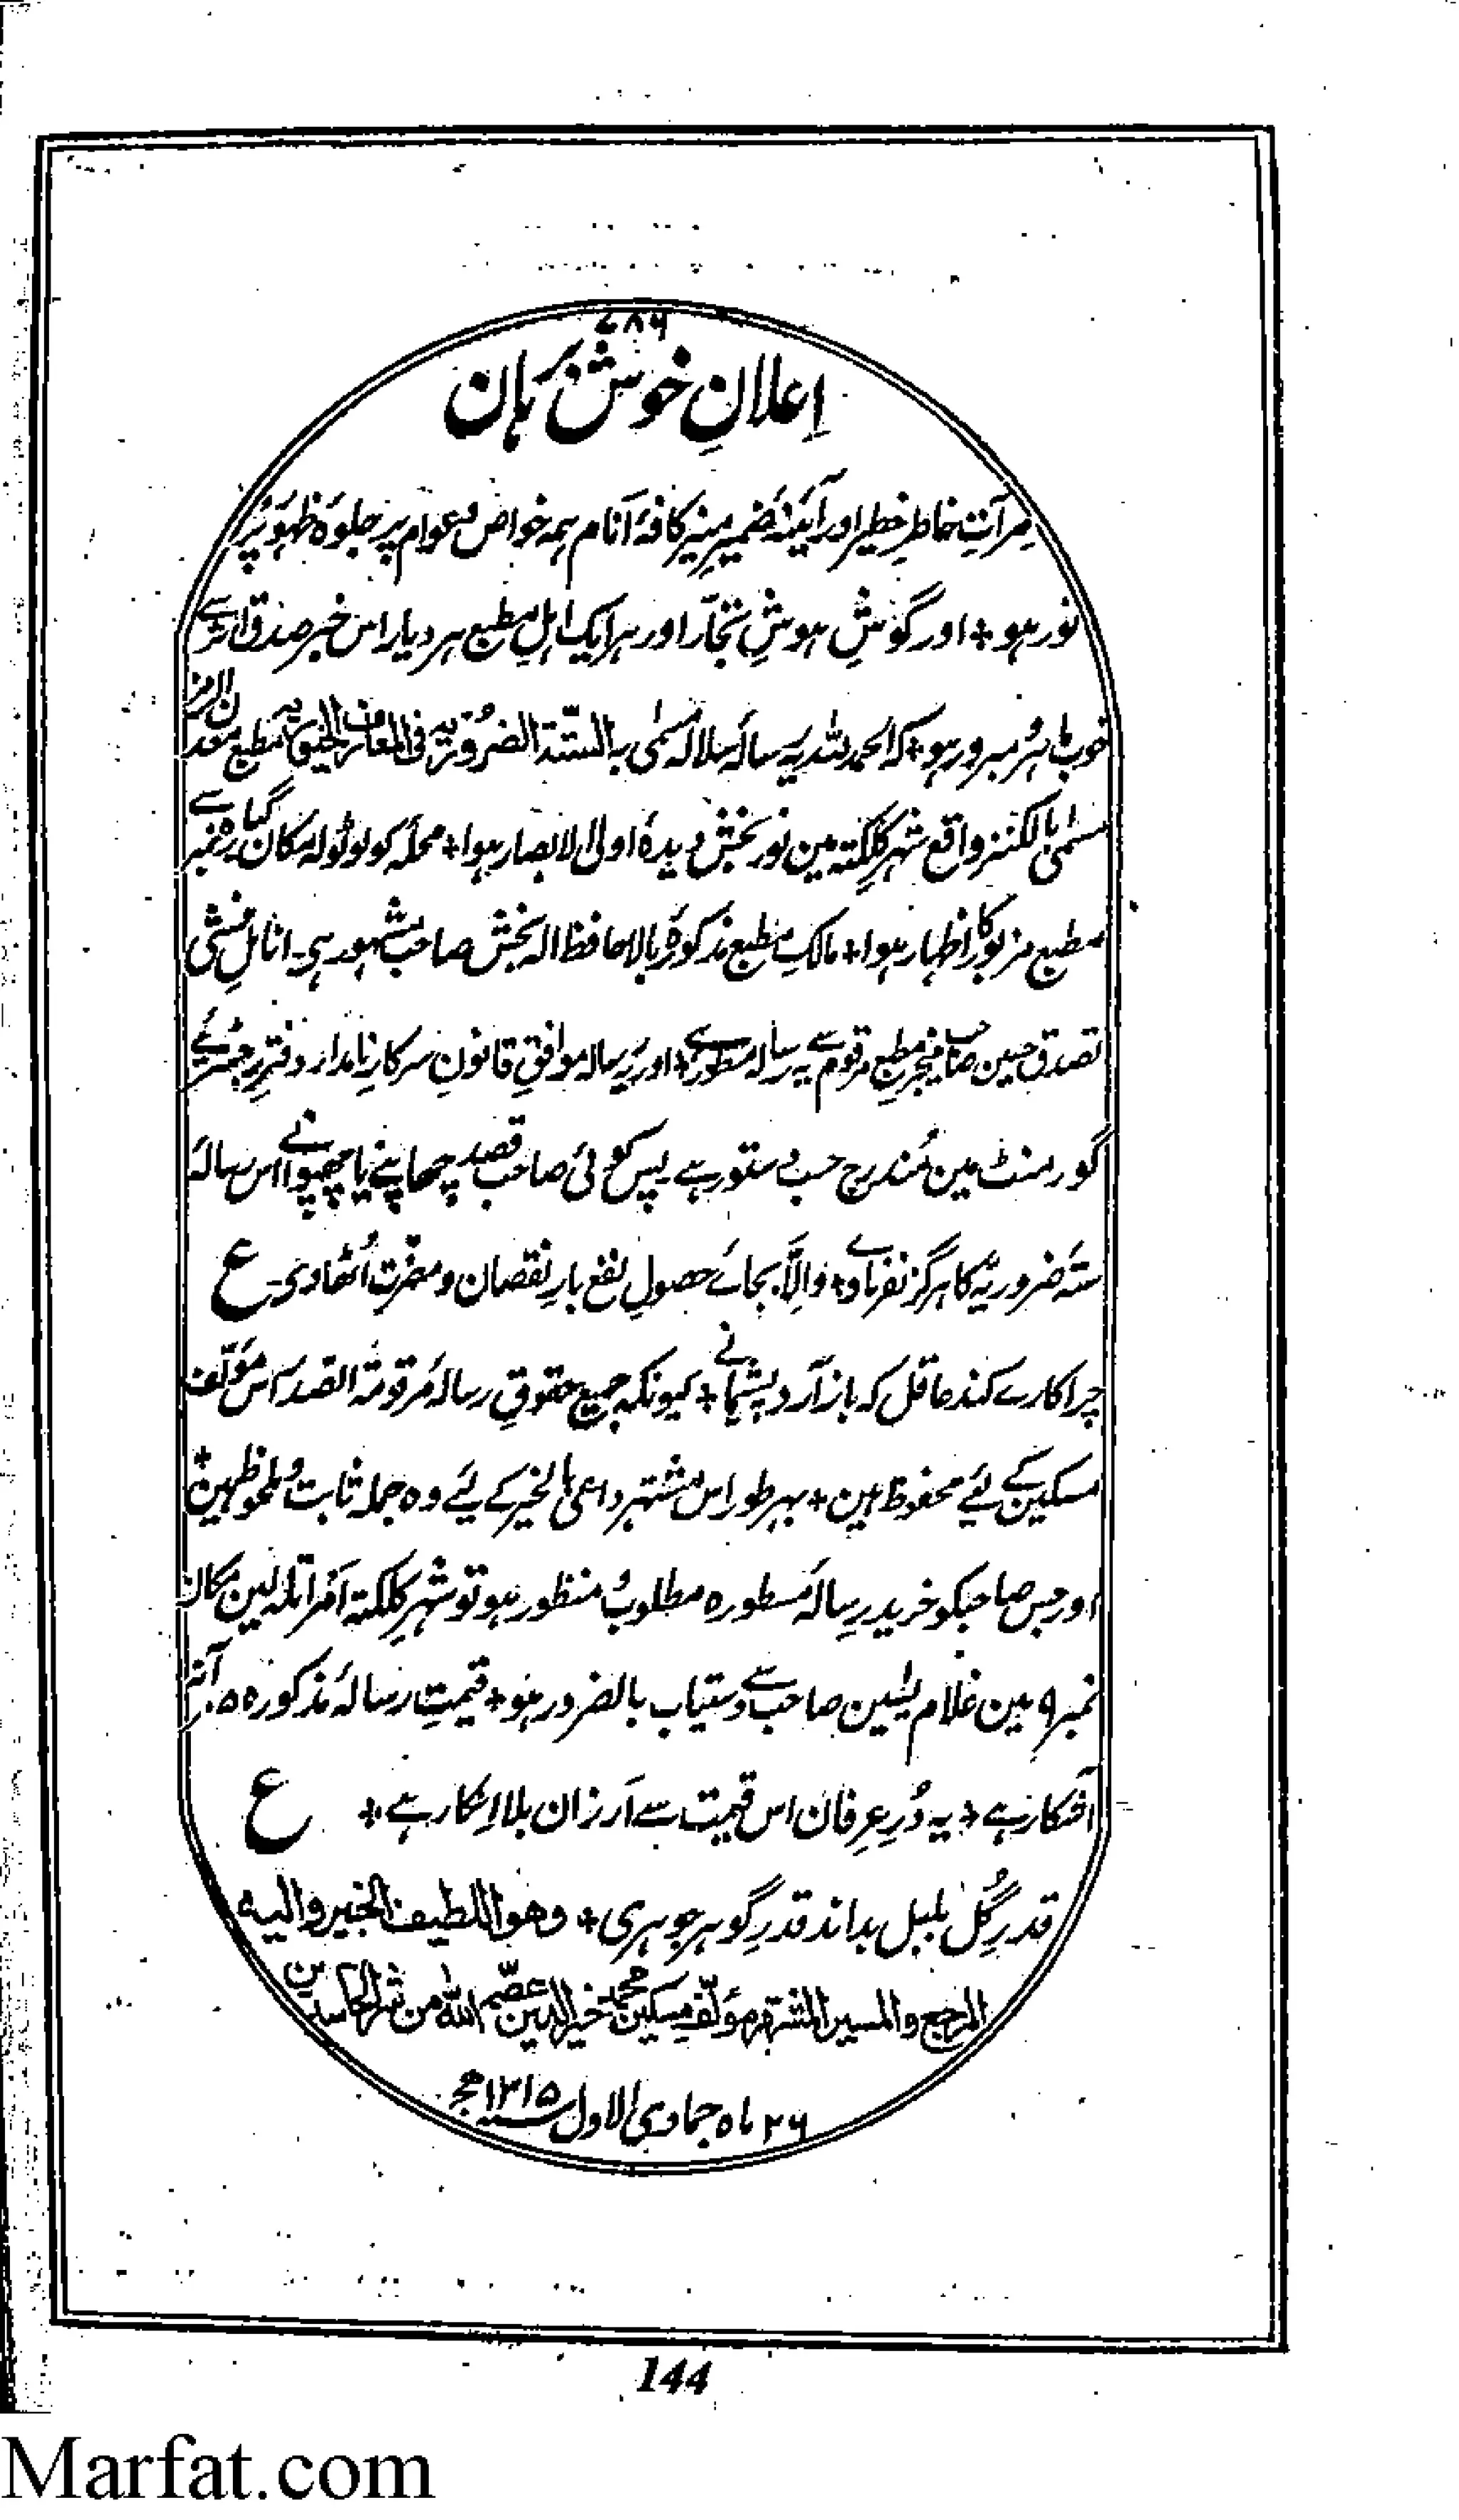 ۷۸۶
اِعلانِ خوش بُرہان
مِرآتِ خاطرِ خطیر اور آئینۂ ضمیرِ منیرِ کافۂ انام ہمہ خواص و عوام پر جلوۂ ظہور پُر
نور ہو + اور گوشِ ہوشِ تجّار اور ہر ایک اہلِ مطبع ہر دیار اس خبرِ صدق اثر سے
خوب ماہر و مسرور ہو + کہ الحمد للہ یہ رسالہ سلالہ مسمّی بہ الستّة الضروریہ فی المعارف الخیوریہ مطبع معدن
مسمّیٰ بالکنز واقع شہر کلکتہ مین نور بخش دیدۂ اولی الابصار ہوا + محلہ کولوٹولہ مکان نمبر سے
مطبع مزبور کا اظہار ہوا + مالکِ مطبع مذکورۂ بالا حافظ الہ بخش صاحب مشہور ہی۔ منشی
تصدق حسین صاحب منیجر مطبع مرقوم سے یہ رسالہ مسطور ہے + اور یہ رسالہ موافقِ قانونِ سرکارِ نامدار دفترِ رجسٹرئے
گورمنٹ مین مُندرج حسب دستور ہے۔ پس کوئی صاحب قصد چھاپنے یا چھپوانے اس رسالۂ
ستۂ ضروریہ کا ہرگز نفرماوے + وَاِلّا بجائے حصولِ نفع بارِ نقصان و مضرت اُٹھاوی۔ ع
چرا کارے کند عاقل کہ باز آرد پشیمانے + کیونکہ جمیع حقوقِ رسالۂ مرقومۃ الصدر اس مؤلّف
مسکین کے لئے محفوظ ہین + بہر طور اس مشتہر داعی بالخیر کے لیے وہ جملہ ثابت و ملحوظ ہین +
اور جس صاحبکو خرید رسالۂ مسطورہ مطلوب و منظور ہو تو شہرِ کلکتہ امرا تلہ لین مکان
نمبر ۹ مین غلام یٰسین صاحب سے دستیاب بالضرور ہو + قیمتِ رسالۂ مذکورہ ۵ آنہ
آشکار ہے + یہ دُرِ عرفان اس قیمت سے اَرزان بلا اِنکار ہے + ع
قدرِ گُل بلبل بداند قدرِ گوہر جوہری + وهو اللطيف الخبير واليه
المرجع والمسير المشتهر مؤلّف مسکین محمد خیر الدین عصّمه الله من شر الحاسدین
۲۶ ماہ جمادی الاول سنہ ۱۳۱۵ ہج
144
Marfat.com